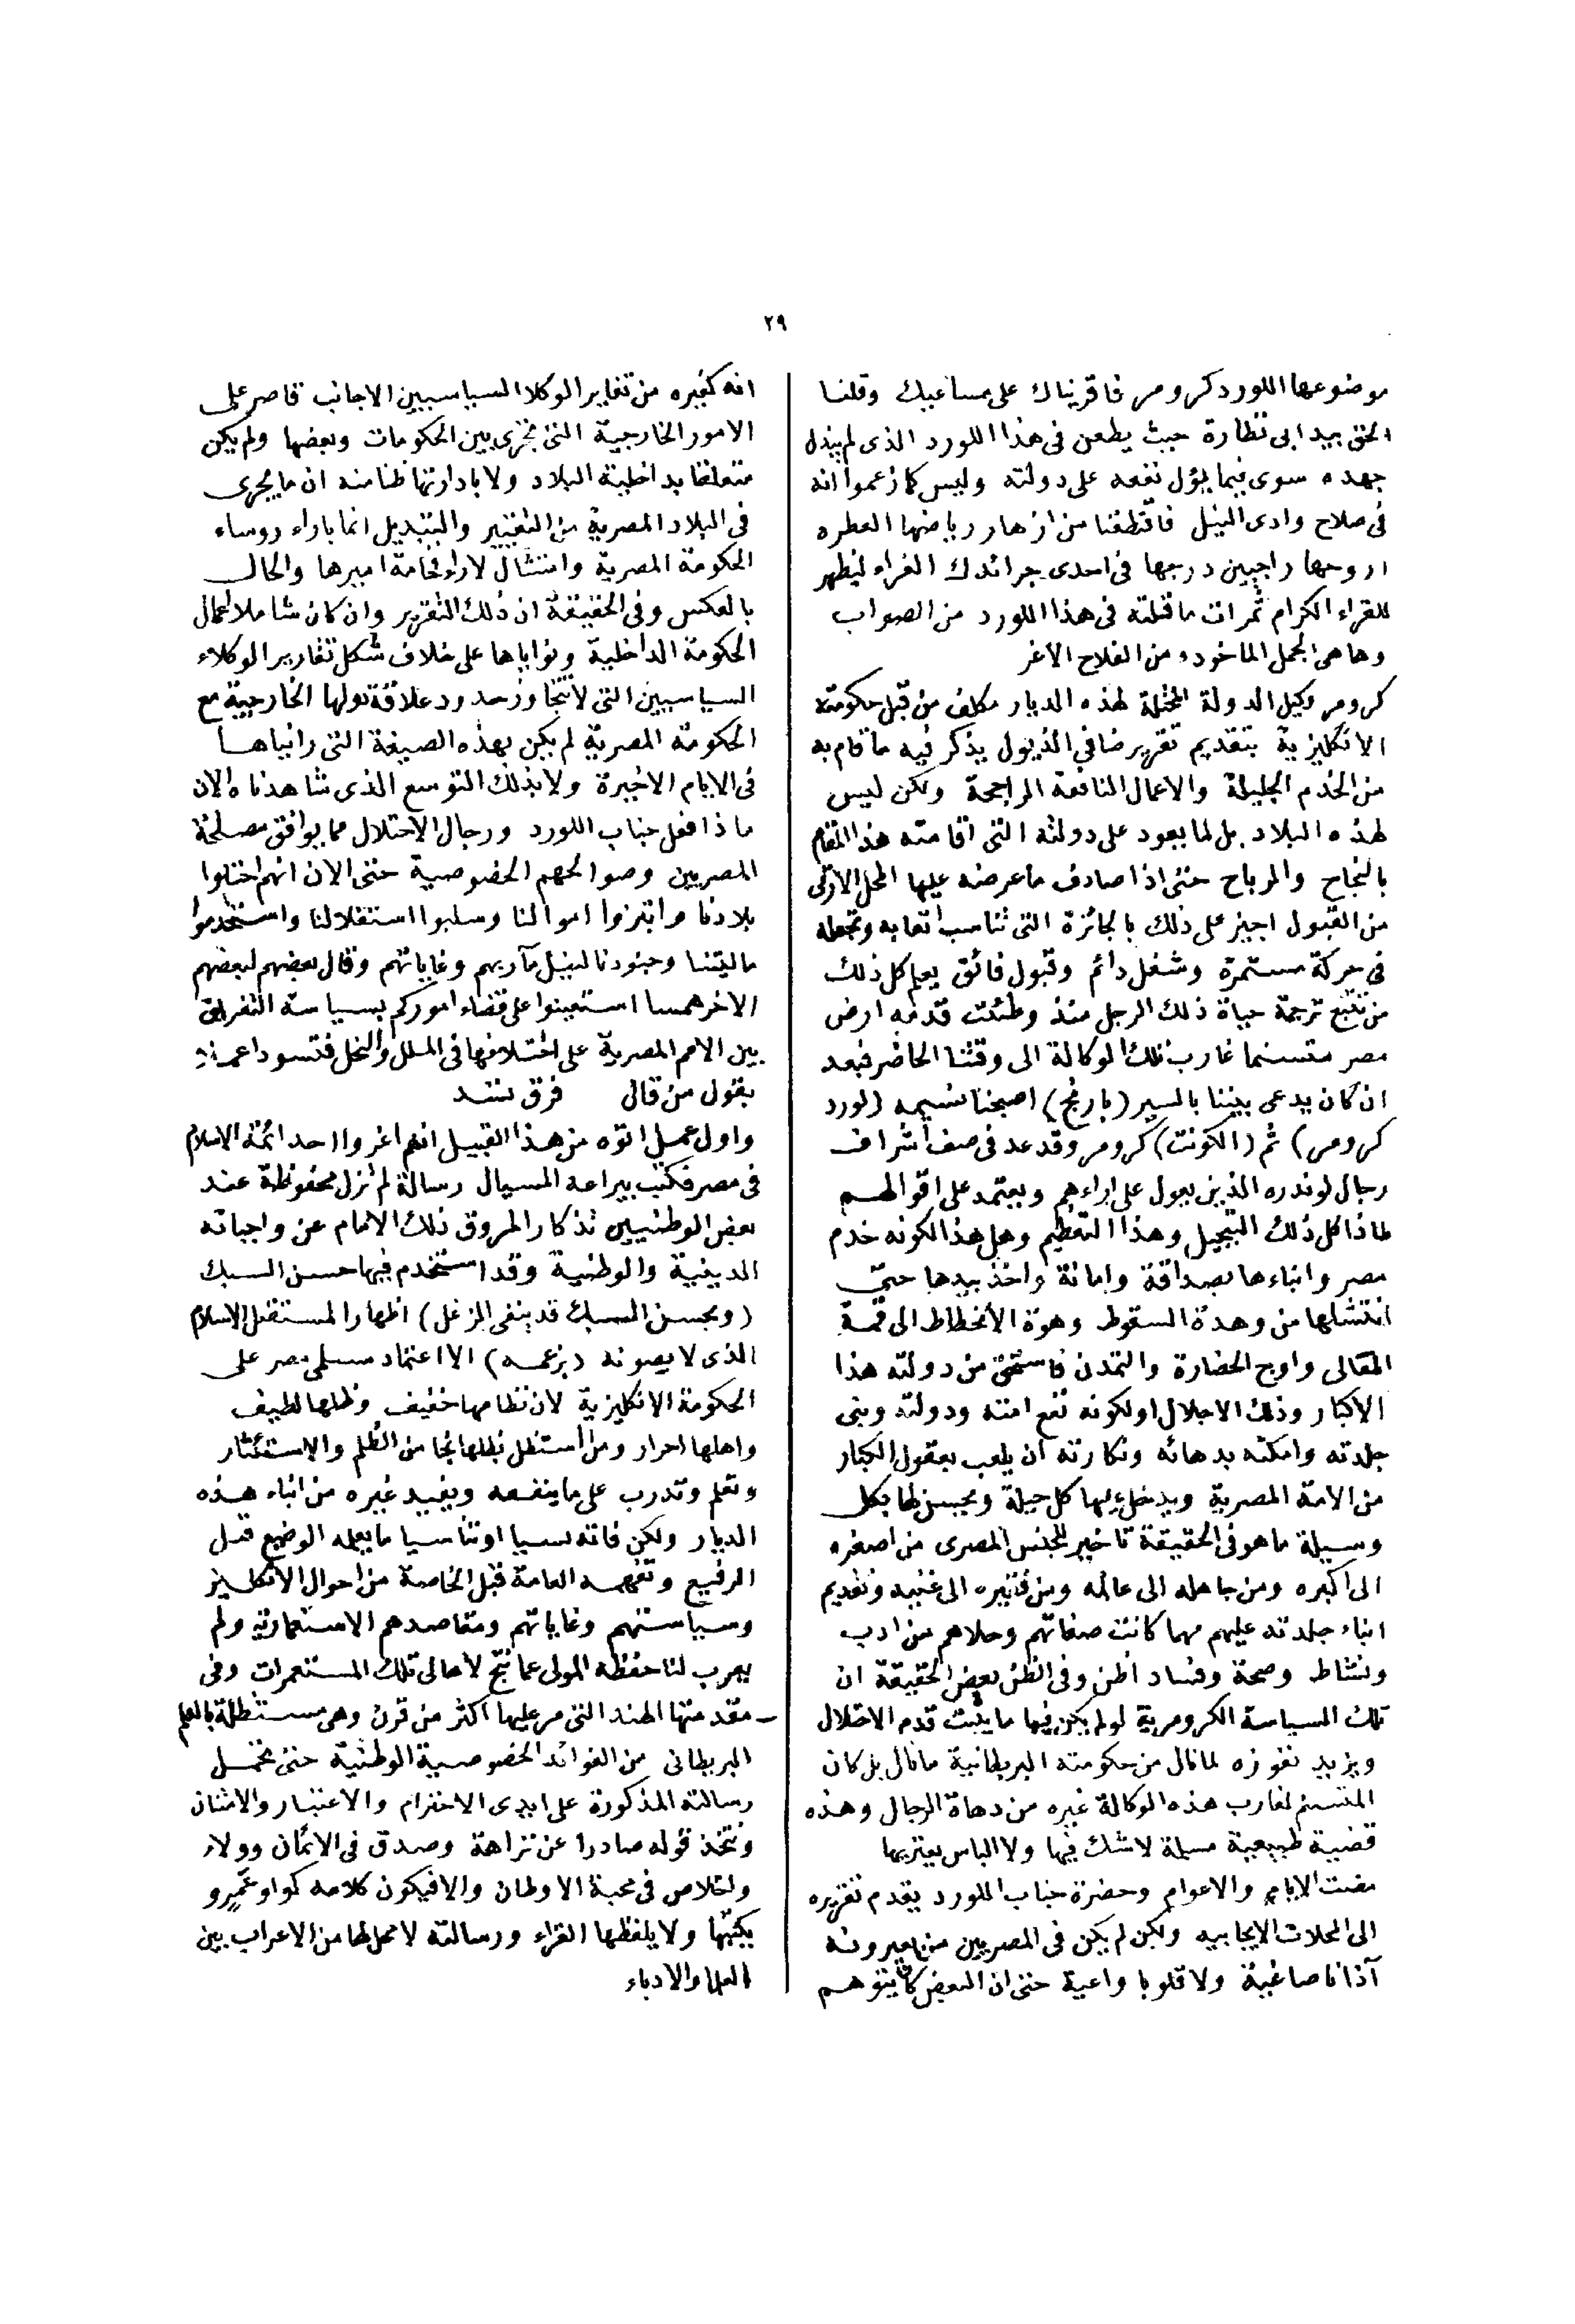 ٢٩
موضوعها اللورد كرومر فاقريناك على مساعيك وقلنا
الحق بيد ابى نظارة حيث يطعن فى هذا اللورد الذى لم يبذل
جهده سوى فيما يؤل نفعه على دولته وليس كما زعموا انه
فى صلاح وادى النيل فاقتطفنا من ازهار رياضها العطره
اروحها راجيين درجها فى احدى جرائدك الغراء ليظهر
للقراء الكرام ثمرات ما قلته فى هذا اللورد من الصواب
وها هى الجمل الماخوده من الفلاح الاغر
كرومر وكيل الدولة المحتلة لهذه الديار مكلف من قبل حكومته
الانكليزية بتقديم تقرير ضافى الذيول يذكر فيه ما قام به
من الخدم الجليلة والاعمال النافعة الراجحة ولكن ليس
لهذه البلاد بل لما يعود على دولته التى اقامته هذا المقام
بالنجاح والمرباح حتى اذا صادف ما عرضه عليها المحل الارقى
من القبول اجيز على ذلك بالجائزة التى تناسب اتعابه وتجعله
فى حركة مستمرة وشغل دائم وقبول فائق يعلم كل ذلك
من تتبع ترجمة حياة ذلك الرجل منذ وطئت قدمه ارض
مصر متسنما غارب تلك الوكالة الى وقتنا الحاضر فبعد
ان كان يدعى بيننا بالسير (بارنج) اصبحنا نسميه (لورد
كرومر) ثم (الكونت) كرومر وقد عد فى صف أشراف
رجال لوندره الذين يعول على اراءهم ويعتمد على اقوالهم
لماذا كل ذلك التبجيل وهذا التعظيم وهل هذا لكونه خدم
مصر وابناءها بصداقة وامانة واخذ بيدها حتى
انتشلها من وهدة السقوط وهوة الأنحطاط الى قمة
المعالى واوج الحضارة والتمدن فاستحق من دولته هذا
الاكبار وذلك الاجلال او لكونه نفع امته ودولته وبنى
جلدته وامكنه بدهائه ونكارته ان يلعب بعقول الكبار
من الامة المصرية ويدخل عليها كل حيلة ويحسن لها بكل
وسيلة ما هو فى الحقيقة تاخير للجنس المصرى من اصغره
الى اكبره ومن جاهله الى عالمه ومن فقيره الى غنيه وتقديم
ابناء جلدته عليهم مهما كانت صفاتهم وحلاهم من ادب
ونشاط وصحة وفساد اظن وفى الظن بعض الحقيقة ان
تلك السياسة الكرومرية لو لم يكن فيها ما يثبت قدم الاحتلال
ويزيد نفوزه لما نال من حكومته البريطانية ما نال بل كان
المتسنم لغارب هذه الوكالة غيره من دهاة الرجال وهذه
قضية طبيعية مسلمة لا شك فيها ولا الباس يعتريها
مضت الايام والاعوام وحضرة جناب اللورد يقدم تقريره
الى المحلات الايجابيه ولكن لم يكن فى المصريين من يعيرونه
آذانا صاغية ولا قلوبا واعية حتى ان البعض كان يتوهم
انه كغيره من تقاير الوكلا السياسيين الاجانب قاصر على
الامور الخارجية التى تجرى بين الحكومات وبعضها ولم يكن
متعلقا بداخلية البلاد ولا بادارتها ظنا منه ان ما يجرى
فى البلاد المصرية من التغيير والتبديل انما باراء روساء
الحكومة المصرية وامتثال لاراء فخامة اميرها والحال
بالعكس وفى الحقيقة ان ذلك التقرير وان كان شاملا لاعمال
الحكومة الداخلية ونواياها على خلاف شكل تقارير الوكلاء
السياسيين التى لا تتجاوز حدود علاقة دولها الخارجية مع
الحكومة المصرية لم يكن بهذه الصيغة التى رايناها
فى الايام الاخيرة ولا بذلك التوسع الذى شاهدناه الان
ماذا فعل جناب اللورد ورجال الاحتلال مما يوافق مصلحة
المصريين وصوالحهم الخصوصية حتى الان انهم احتلوا
بلادنا وابتزوا اموالنا وسلبوا استقلالنا واستخدموا
ماليتنا وجنودنا لنيل مآربهم وغاياتهم وقال بعضهم لبعضهم
الاخر همسا استعينوا على قضاء اموركم بسياسة التفريق
بين الامم المصرية على اختلافها فى الملل والنحل فتسودوا عملا
بقول من قال فرق تسد
واول عمل اتوه من هذا القبيل انهم اغروا احد ائمة الاسلام
فى مصر فكتب بيراعه السيال رسالة لم تزل محفوظة عند
بعض الوطنيين تذكارا لمروق ذلك الامام عن واجباته
الدينية والوطنية وقد استخدم فيها حسن السبك
(وبحسن السبك قد ينفى الزغل) اظهارا لمستقبل الاسلام
الذى لا يصونه (بزعمه) الا اعتماد مسلمى مصر على
الحكومة الانكليزية لان نظامها خفيف وظلها لطيف
واهلها احرار ومن استظل بظلها نجا من الظلم والاستئثار
وتعلم وتدرب على ما ينفعه ويفيد غيره من ابناء هذه
الديار ولكن فاته نسيا او تناسيا ما يعلمه الوضيع قبل
الرفيع وتفهمه العامة قبل الخاصة من احوال الانكليز
وسياستهم وغاياتهم ومقاصدهم الاستعمارية ولم
يعرب لنا حفظه المولى عما نتج لاهالى تلك المستعمرات وفى
مقدمتها الهند التى مر عليها اكثر من قرن وهى مستظلة بالعلم
البريطانى من الفوائد الخصوصية الوطنية حتى تحمل
رسالته المذكورة على ايدى الاحترام والاعتبار والامتنان
ونتخذ قوله صادرا عن نزاهة وصدق فى الائمان وولاء
واخلاص فى محبة الاوطان والا فيكون كلامه كواو عمرو
يكتبها ولا يلفظها القراء ورسالته لا محل لها من الاعراب بين
العلما والادباء